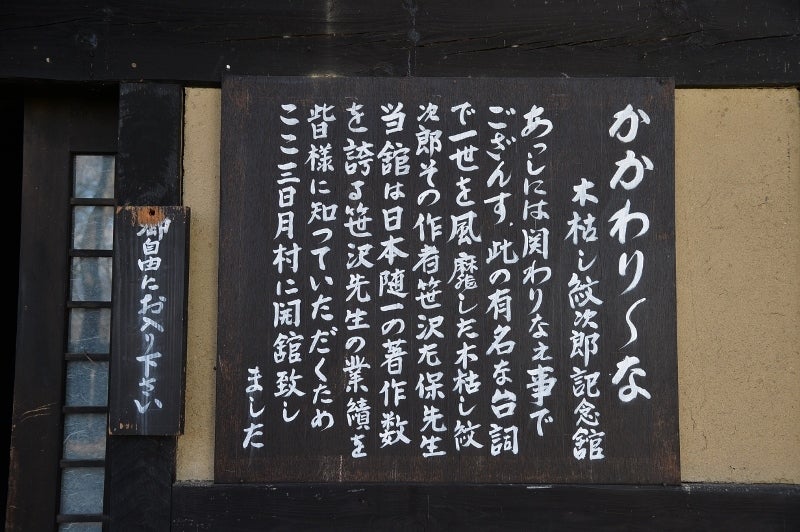 かかわり〜な
木枯し紋次郎記念舘
あっしには関わりなえ事で
ござんす、此の有名な台詞
で一世を風靡した木枯し紋
次郎その作者笹沢左保先生
当舘は日本随一の著作数
を誇る笹沢先生の業績を
皆様に知っていただくため
ここ三日月村に開舘致し
ました
御自由にお入り下さい